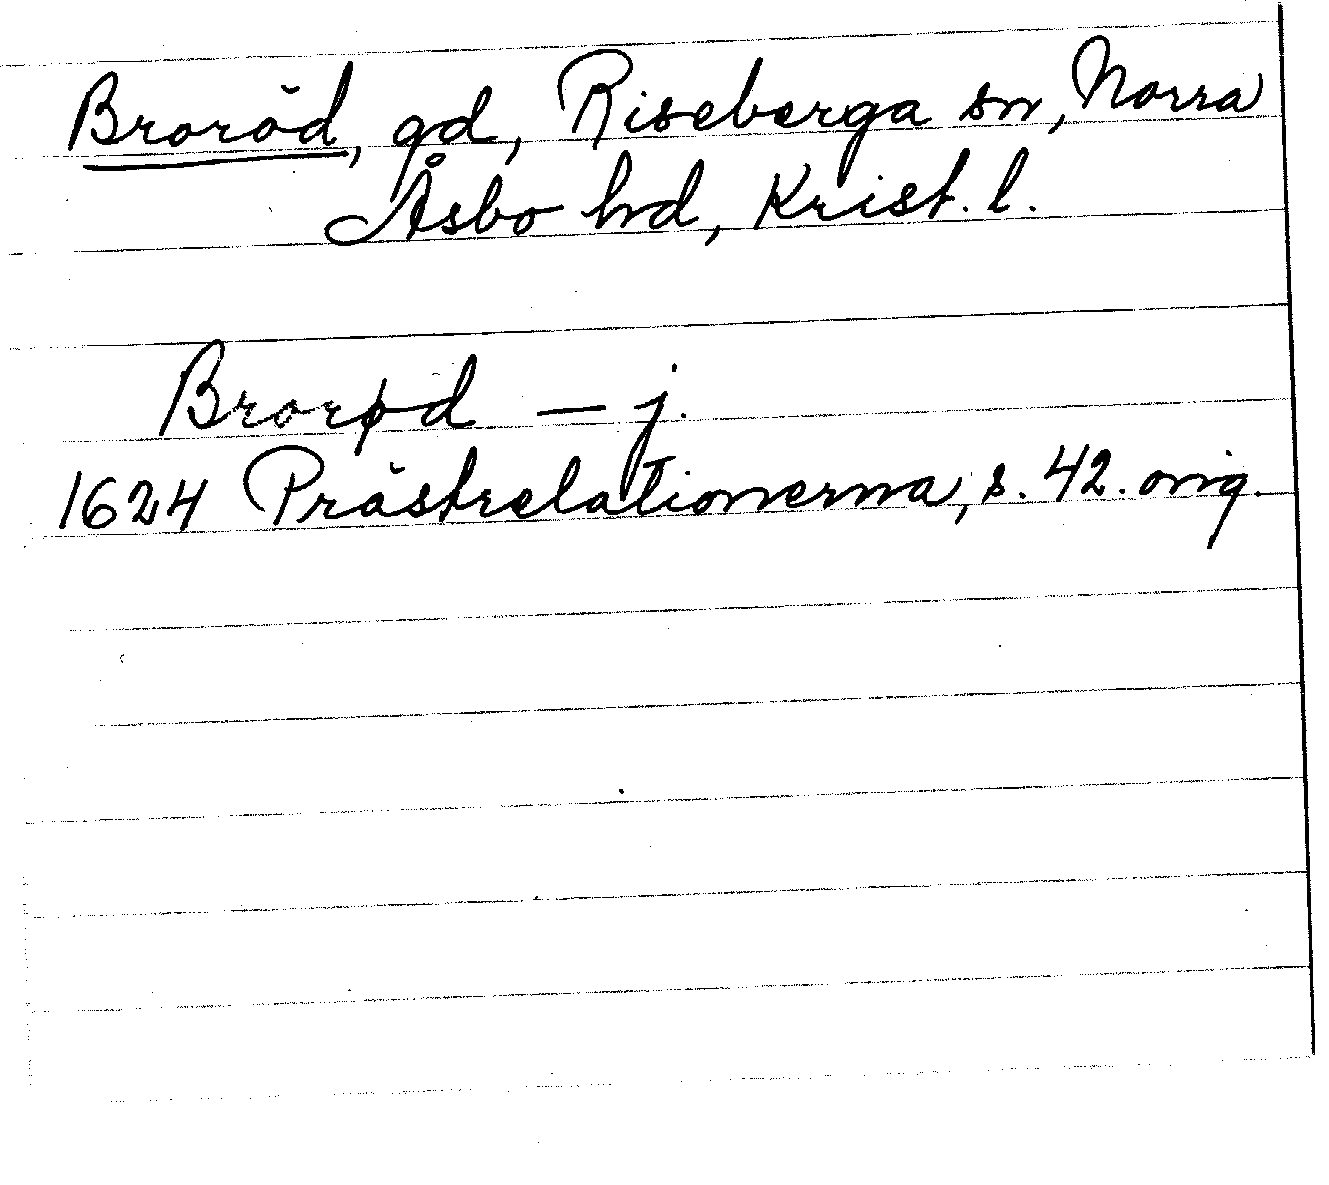 Broröd, gd, Riseberga sn, Norra
Åsbo hd, Krist. l.
Brorød — j.
1624 Prästrelationerna, s. 42. orig.